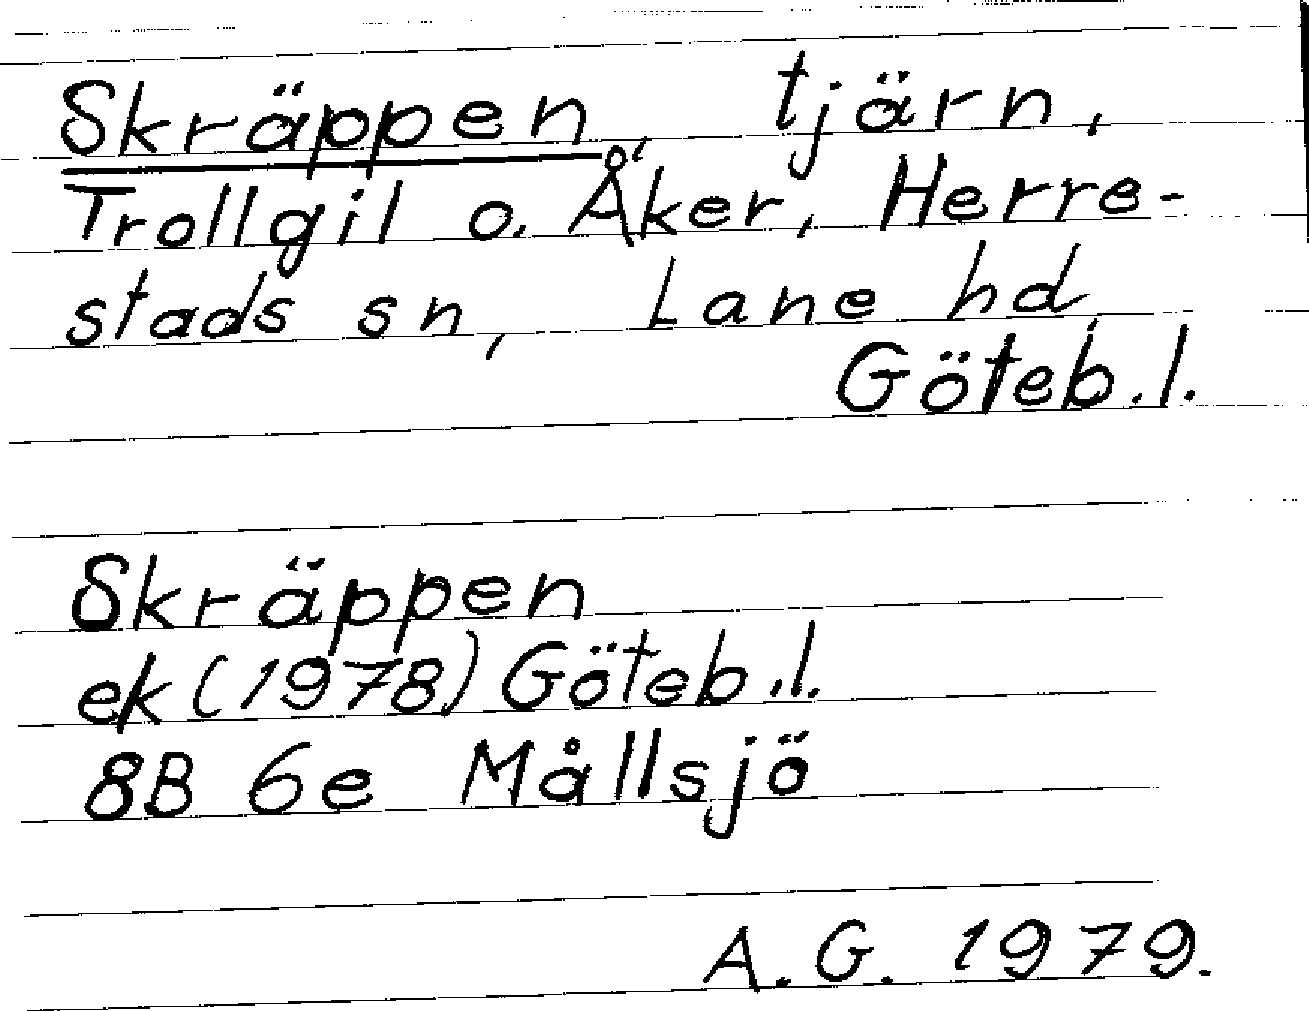 Skräppen, tjärn,
Trollgil o. Åker, Herre-
stads sn, Lane hd,
Göteb.l.
Skräppen
ek (1978) Göteb.l.
8B 6e Mållsjö
A.G. 1979.